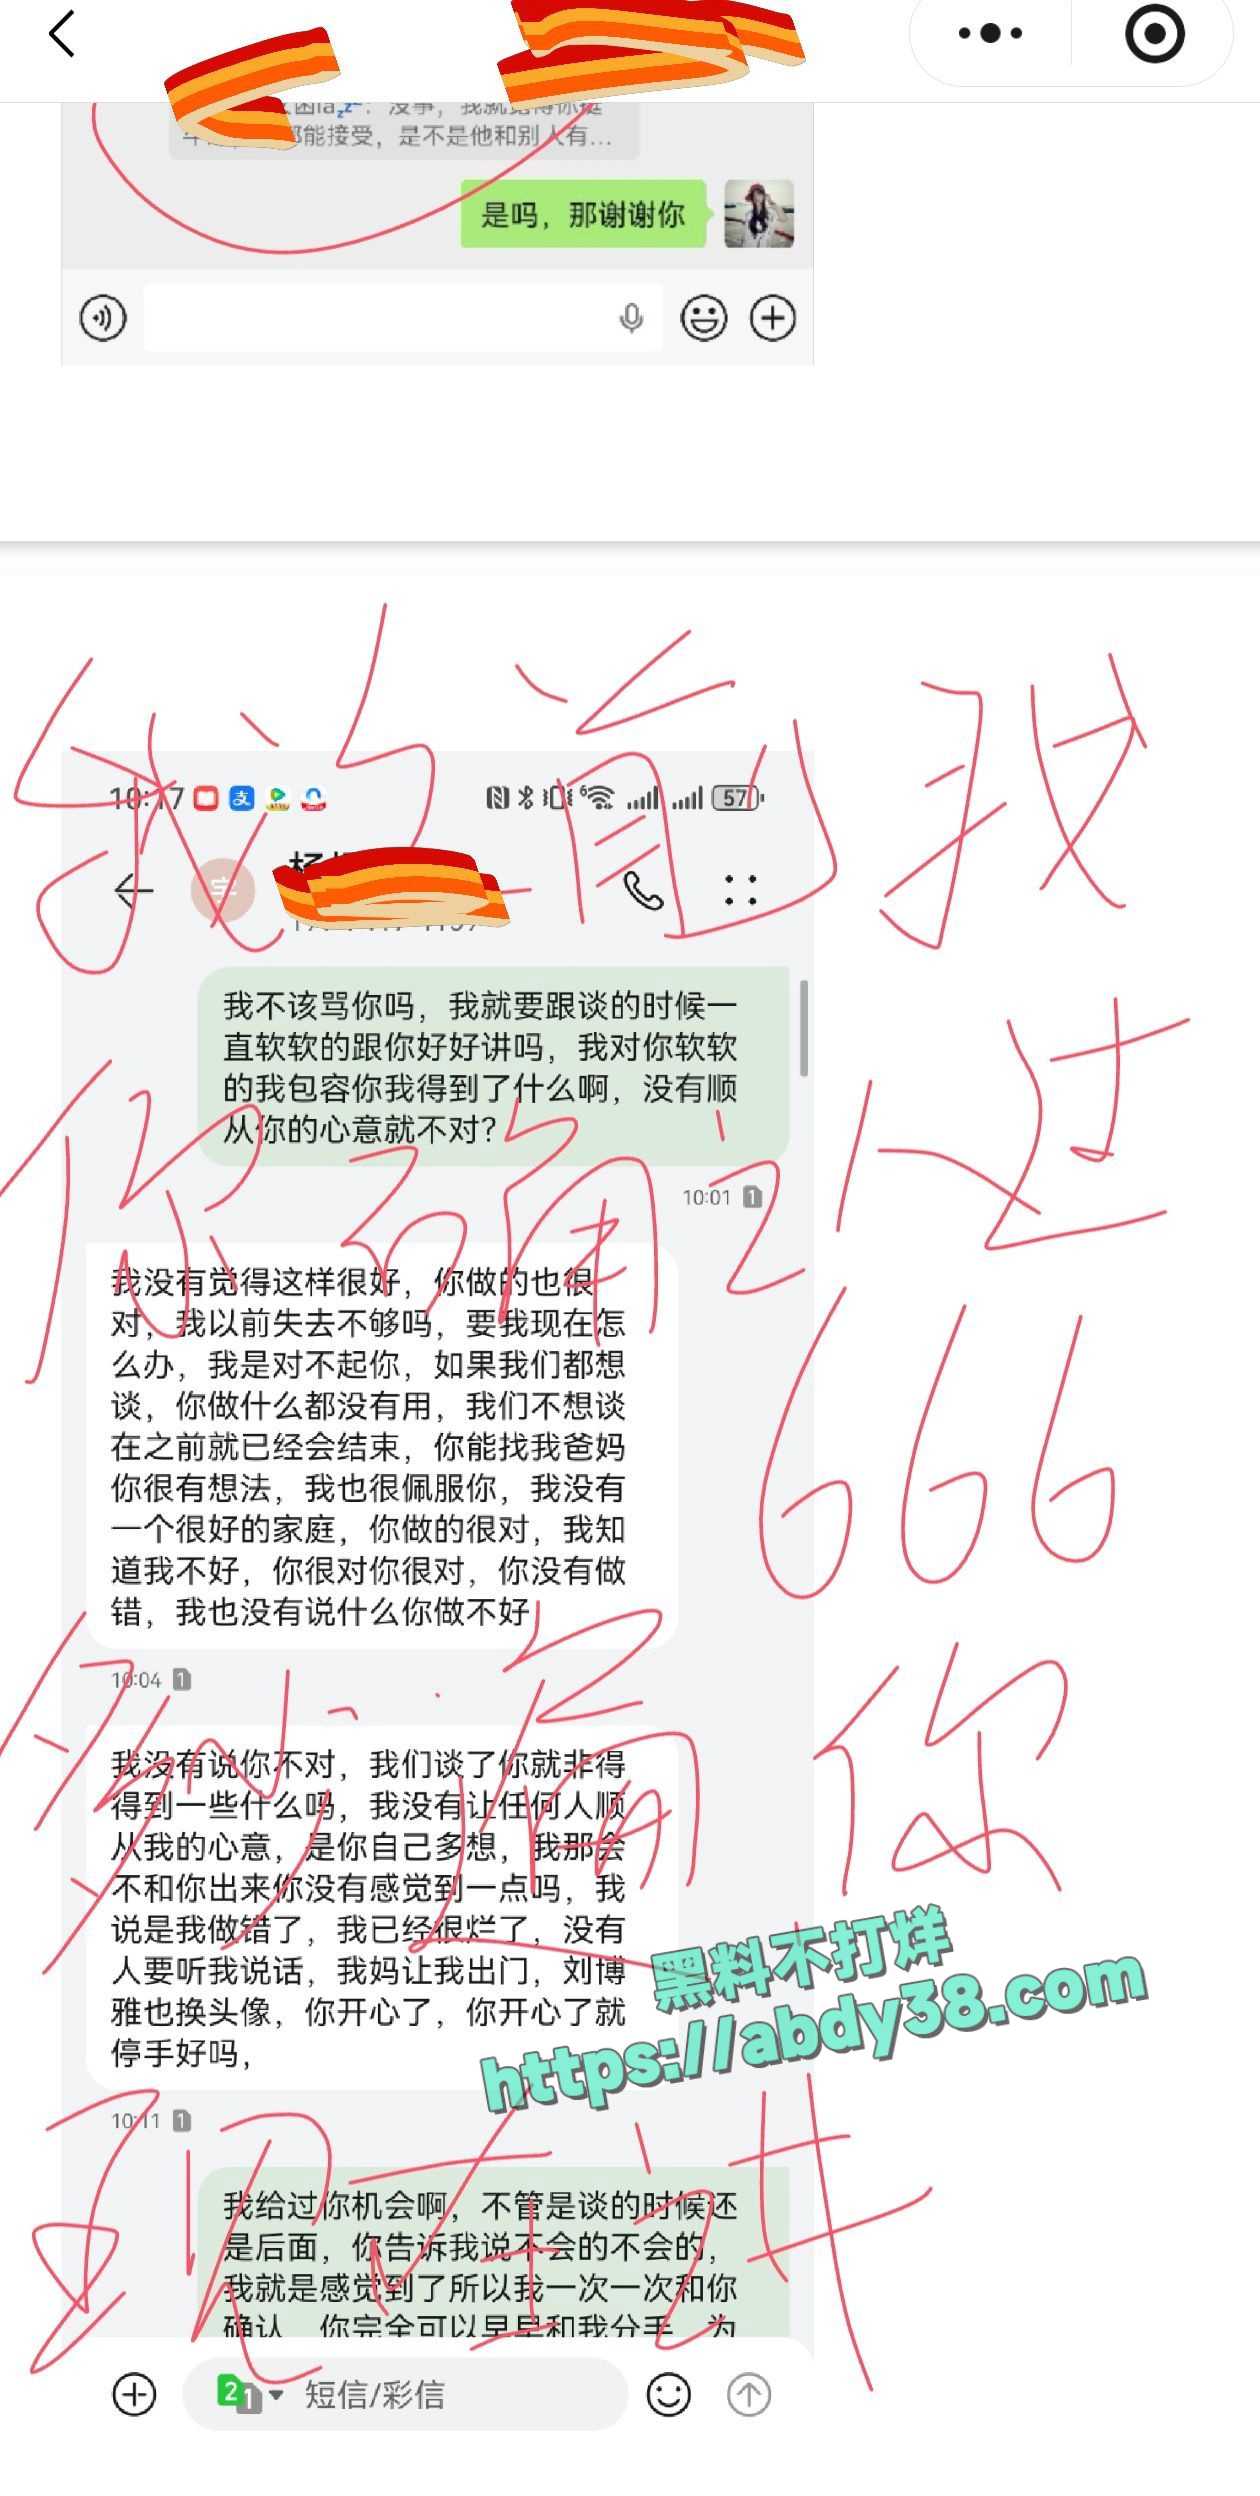 都能接受，是不是他和别人有...
是吗，那谢谢你
10:17
57
字
我不该骂你吗，我就要跟谈的时候一
直软软的跟你好好讲吗，我对你软软
的我包容你我得到了什么啊，没有顺
从你的心意就不对？
10:01 1
我没有觉得这样很好，你做的也很
对，我以前失去不够吗，要我现在怎
么办，我是对不起你，如果我们都想
谈，你做什么都没有用，我们不想谈
在之前就已经会结束，你能找我爸妈
你很有想法，我也很佩服你，我没有
一个很好的家庭，你做的很对，我知
道我不好，你很对你很对，你没有做
错，我也没有说什么你做不好
10:04 1
666
我没有说你不对，我们谈了你就非得
得到一些什么吗，我没有让任何人顺
从我的心意，是你自己多想，我那会
不和你出来你没有感觉到一点吗，我
说是我做错了，我已经很烂了，没有
人要听我说话，我妈让我出门，刘博
雅也换头像，你开心了，你开心了就
停手好吗，
10:11 1
黑料不打烊
https://abdy38.com
我给过你机会啊，不管是谈的时候还
是后面，你告诉我说不会的不会的，
我就是感觉到了所以我一次一次和你
确认，你完全可以早早和我分手，为
短信/彩信